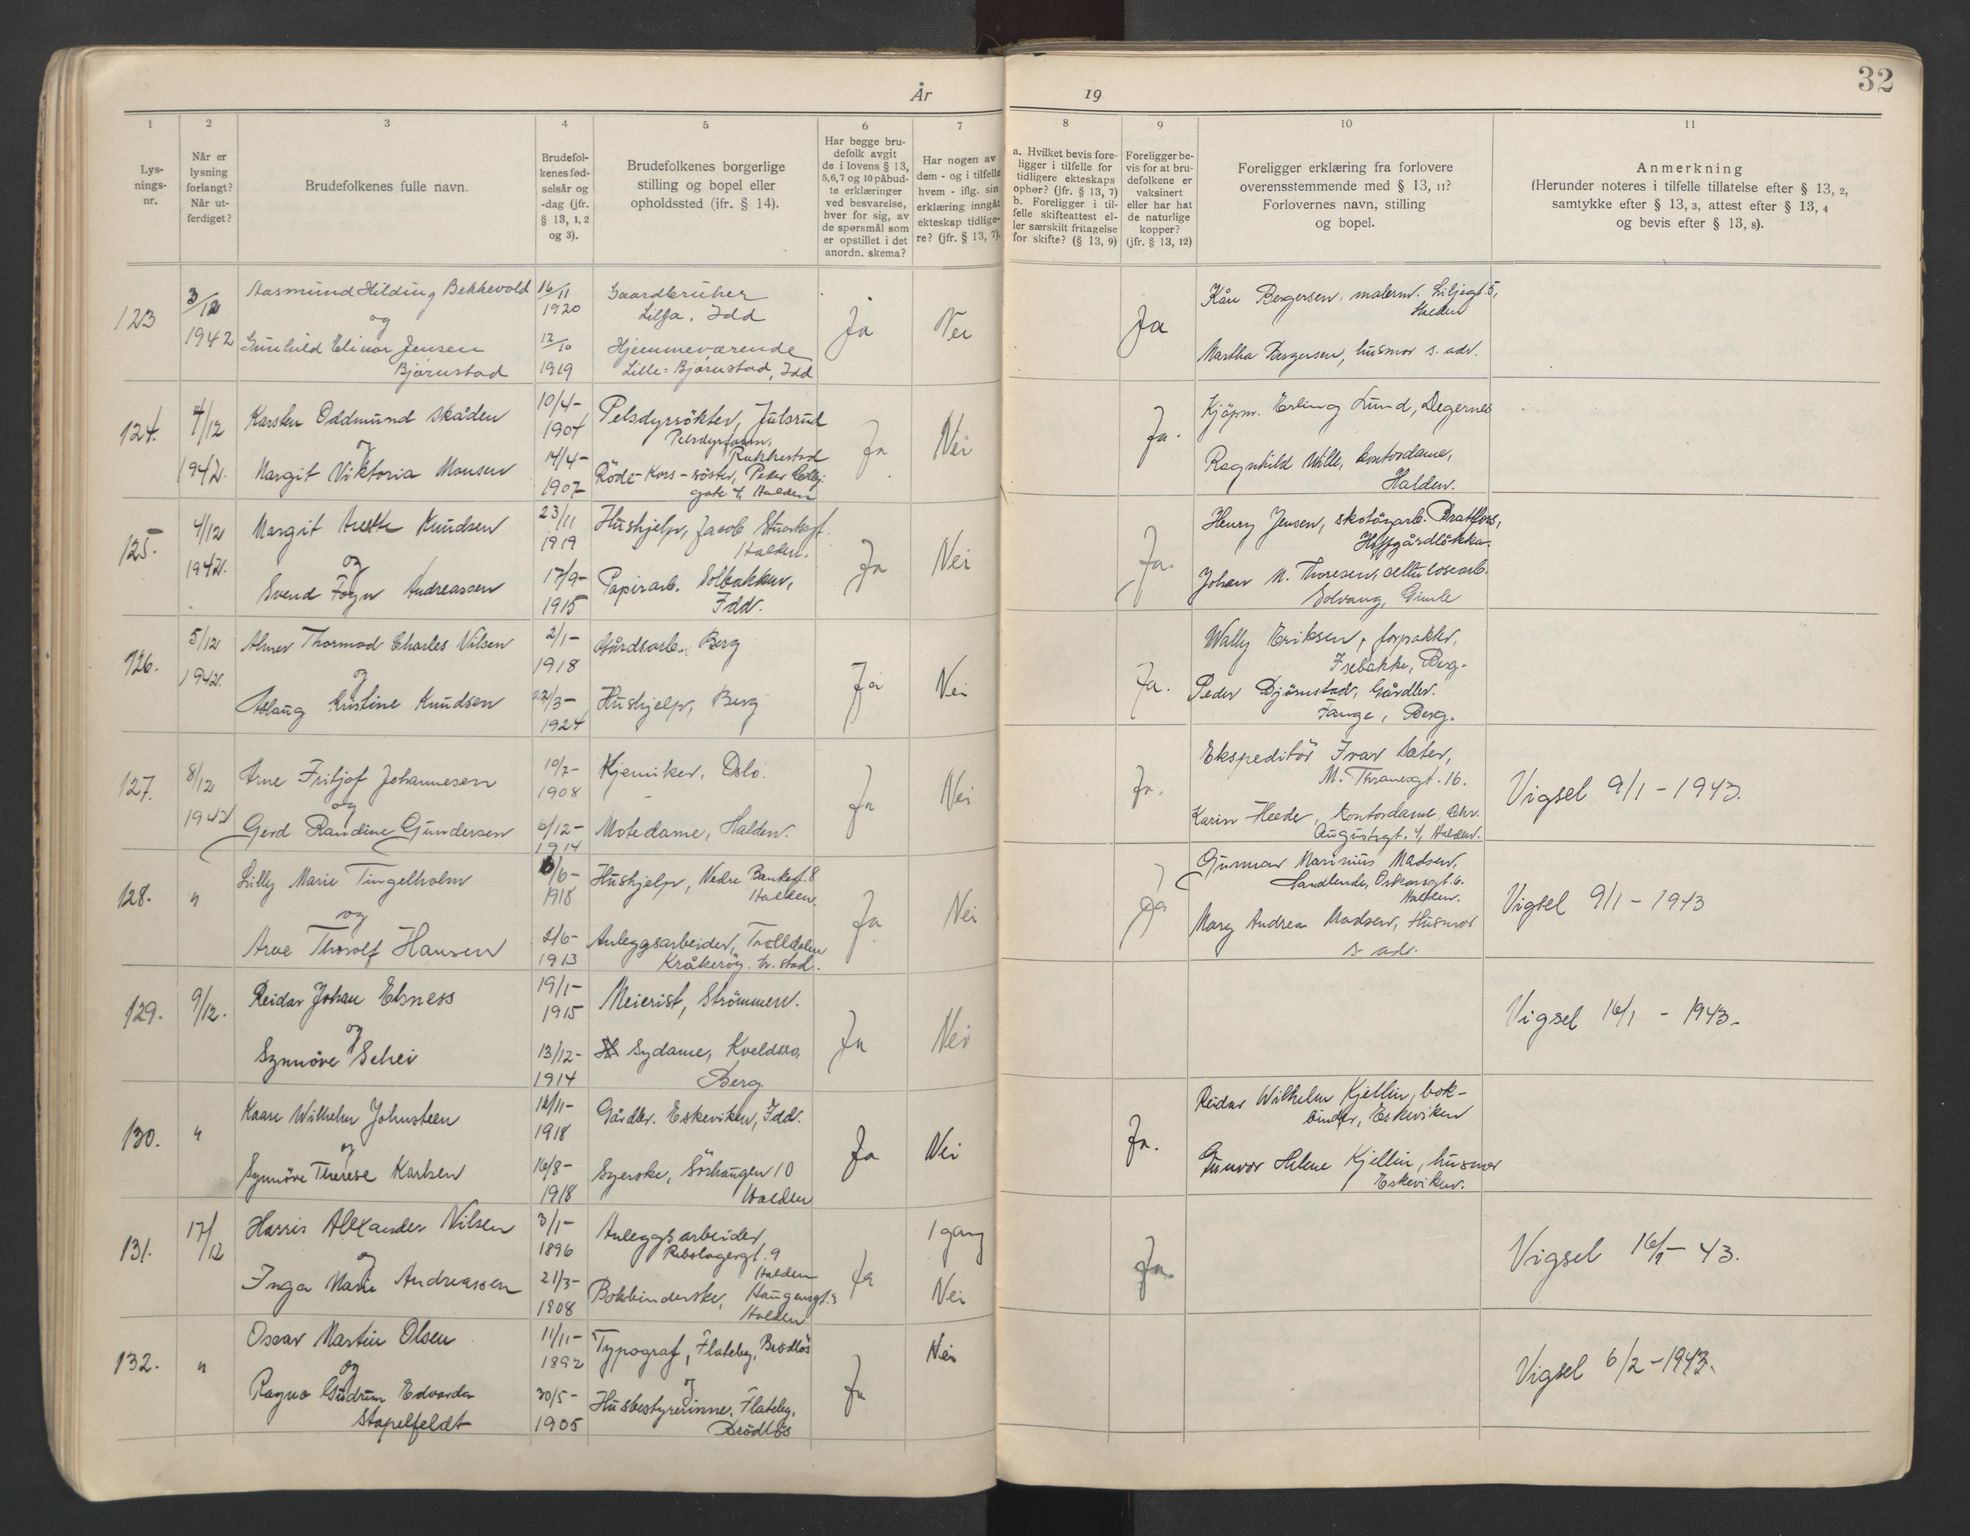 År
19
32
1
2
3
4
5
6
7
8
9
10
11
Lys-
nings-
nr.
Når er
lysning
forlangt?
Når ut-
ferdiget?
Brudefolkenes fulle navn.
Brudefol-
kenes fød-
selsår og
-dag (jfr.
§ 13, 1, 2
og 3).
Brudefolkenes borgerlige
stilling og bopel eller
opholdssted (ifr. § 14).
Har begge bru-
defolk avgit
de i lovens § 13,
5,6,7 og 10 påbud-
te erklæringer
ved besvarelse,
hver for sig, av
de spørsmål som
er opstillet i det
anordn. skema?
Har nogen av
dem - og i tilfelle
hvem - iflg. sin
erklæring inngåt
ekteskap tidlige-
re? (jfr. § 13, 7).
a. Hvilket bevis fore-
ligger i tilfelle for
tidligere ekteskaps
ophør? (jfr. § 13, 7)
b. Foreligger i til-
felle skifteattest el-
ler særskilt fritagelse
for skifte? (§ 13, 9)
Foreligger be-
vis for at bru-
defolkene er
vaksinert
eller har hat
de naturlige
kopper?
(jfr. § 13, 12)
Foreligger erklæring fra forlovere
overensstemmende med § 13, 11?
Forlovernes navn, stilling
og bopel.
Anmerkning
(Herunder noteres i tilfelle tillatelse efter § 13, 2,
samtykke efter § 13, 3, attest efter § 13, 4
og bevis efter § 13, 8).
123
3/12
1942
Aasmund Hilding Bekkevold
og
Gunhild Elinor Jensen
Bjørnstad
16/11
1920
12/10
1919
Gaardbruker
Lilja, Idd
Hjemmeværende
Lille-Bjørnstad, Idd
Ja
Nei
Ja
Kåre Bergersen, malerm. Liljegt. 5,
Halden
Martha Bergersen, husmor s. adr.
124.
4/12
1942.
Karsten Oddmund Skåden
og
Margit Viktoria Monsen
10/4-
1904
14/4-
1907
Pelsdyrrøkter, Julsrud
Pelsdyrfarm,
Rakkestad
Röde-Kors-söster, Peder Colbj.
gate 4, Halden
Ja
Nei
Ja.
Kjöpm. Erling Lund, Degernes
Ragnhild Wille, kontordame,
Halden.
125.
4/12
1942.
Margit Anette Knudsen
og
Svend Foyn Andreassen
23/11
1919
17/9-
1915
Hushjelp, Jacob Stuartsgt.
Halden.
Papirarb. Solbakken,
Idd.
Ja
Nei
Ja.
Henry Jensen, skotöyarb. Bratfoss,
Hoffgårdløkka.
Johan M. Thoresen, cellulosearb.
Solvang, Gimle
126.
5/12
1942.
Almer Thormod Charles Nilsen
og
Aslaug Kristine Knudsen
2/1-
1918
22/3-
1924
Gårdsarb. Berg
Hushjelp, Berg
Ja
Nei
Ja.
Wally Eriksen, forpakter,
Isebakke, Berg.
Peder Björnstad, Gårdbr.
Tange, Berg.
127.
8/12
1942
Arne Fritjof Johannesen
og
Gerd Randine Gundersen
10/7-
1908
6/12-
1914
Kjemiker, Oslo.
Motedame, Halden.
Ja
Nei
Ja.
Ekspeditör Ivar Sater,
M. Thranesgt. 16.
Karin Heeder, kontordame, Chr.
Augustsgt. 4, Halden.
Vigsel 9/1-1943.
128.
"
Lilly Marie Tingelholm
og
Arve Thorolf Hansen
6/6-
1918
2/6-
1913
Hushjelp, Nedre Bankegt. 8
Halden.
Anleggsarbeider, Trolldalen
Kråkeröy, Fr. stad.
Ja
Nei
Ja
Gunnar Marinius Madsen,
Handlende, Oskarsgt. 6.
Halden.
Mary Andrea Madsen, Husmor
s. adr.
Vigsel 9/1-1943
129.
9/12.
Reidar Johan Elsness
og
Synnöve Schei
19/1-
1915
13/12-
1914
Meierist, Strömmen.
Sydame, Kveldsro,
Berg.
Ja
Nei
Vigsel 16/1 - 1943.
130.
"
Kaare Wilhelm Johnsteen
og
Synnöve Therese Karlsen
12/11-
1918
16/8-
1918
Gårdbr. Eskeviken, Idd.
Syerske, Söshaugen 10
Halden
Ja
Nei
Ja.
Reidar Wilhelm Kjellin, bok-
binder, Eskeviken
Gunvor Helene Kjellin, husmor
Eskeviken.
131.
17/12
Harris Alexander Nilsen
og
Inga Marie Andreassen
3/1-
1896
21/3-
1908
Anleggsarbeider
Rebslagergt. 9
Halden
Bokbinderske, Haugensgt. 3
Halden
Ja
1 gang
Nei
Ja.
Vigsel 16/1-43.
132.
"
Oscar Martin Olsen
og
Ragna Gudrun Edvarda
Stapelfeldt
11/11-
1892
30/5-
1905
Typograf, Flateby, Brödløs
og
Husbestyrerinne, Flateby,
Brödløs
Ja
Nei
Vigsel 6/2-1943.